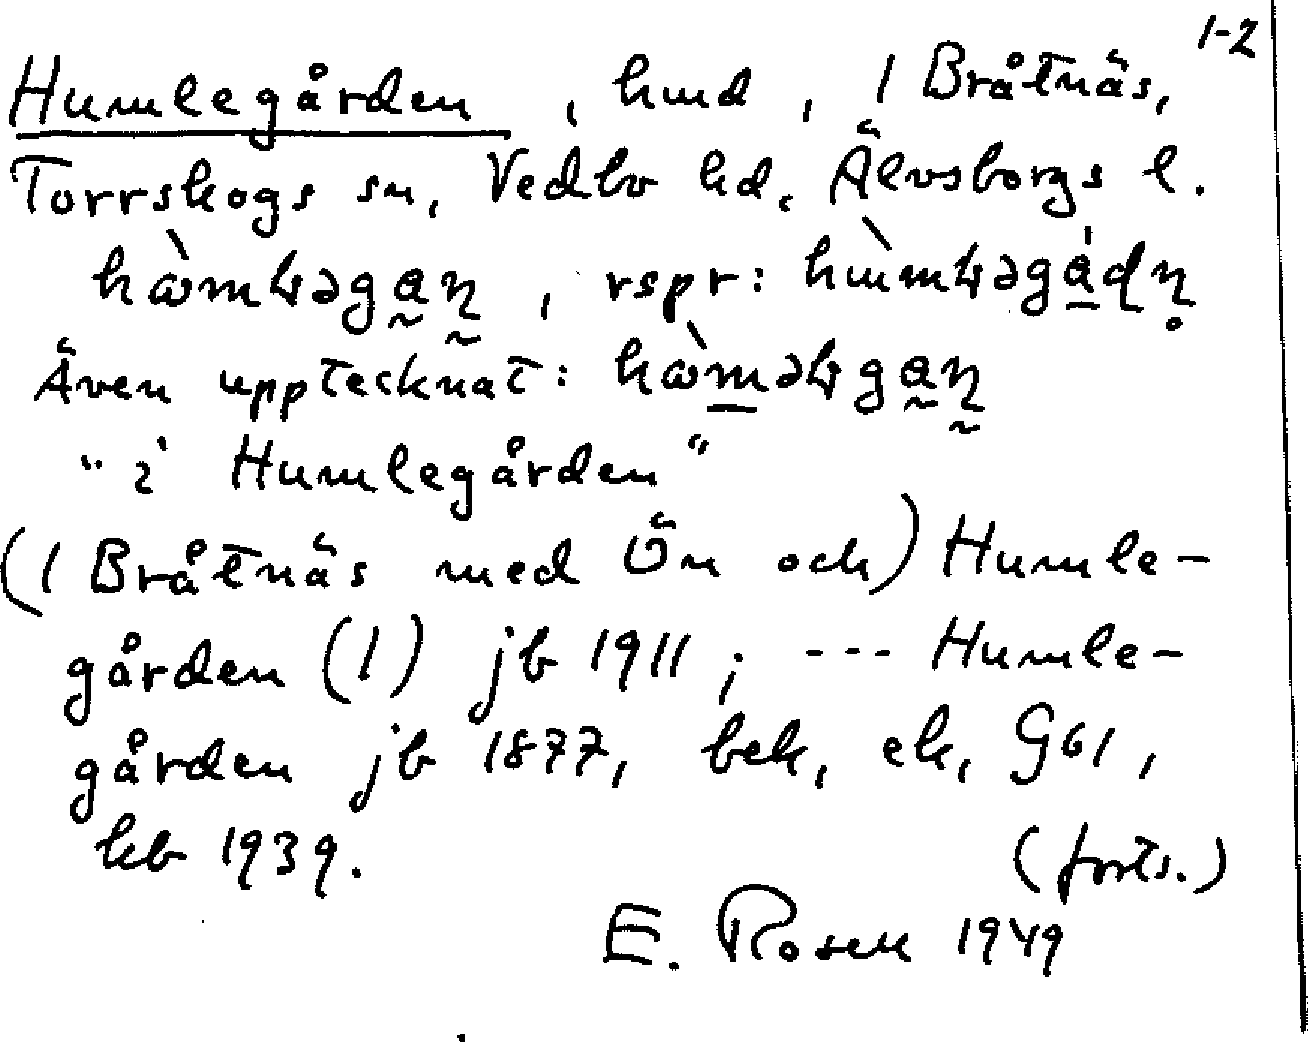 1-2
Humlegården, hmd, 1 Bråtnäs,
Torrskogs sn, Vedbo hd, Älvsborgs l.
, rspr:
Även upptecknat:
"i Humlegården"
(1 Bråtnäs med Ön och) Humle-
gården (1) jb 1911; --- Humle-
gården jb 1877, bek, ek, G61,
kb 1939. (forts.)
E. Rosell 1949